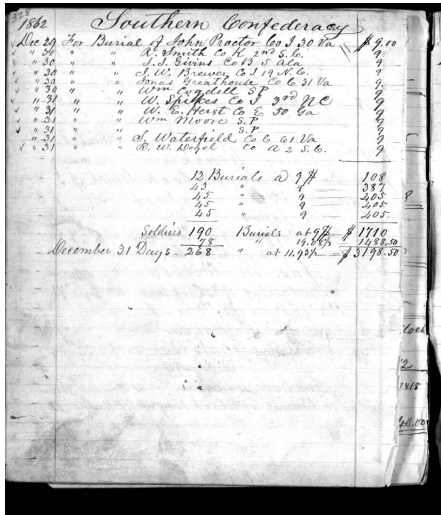 328
1862 Southern Confederacy
Dec 29 For Burial of John Proctor Co I 30 Va $9.00
" 30 " " R. Smith Co K 2nd S.C. 9
" 30 " " J.J. Givins Co B 5 Ala. 9
" 30 " " J.W. Brewer Co I 19 N.C. 9
" 30 " " Jonas Greathouse Co C 31 Va 9
" 30 " " Wm Cogdell S.P. 9
" 31 " " W. Spikes Co I 3rd NC 9
" 31 " " W. E. Herst Co E 50 Ga 9
" 31 " " Wm Moore S.P. 9
" 31 " " S.P. 9
" 31 " " J. Waterfield Co C 61 Va 9
" 31 " " R. W. Co A 2 S.C. 9
12 Burials a 9$ 108
43 " 9 387
45 " 9 405
45 " 9 405
45 " 9 405
Soldiers 190 Burials at 9$ = $1710
78 " 1488.50
December 31 Days - 268 " at 11.93½ = $3198.50